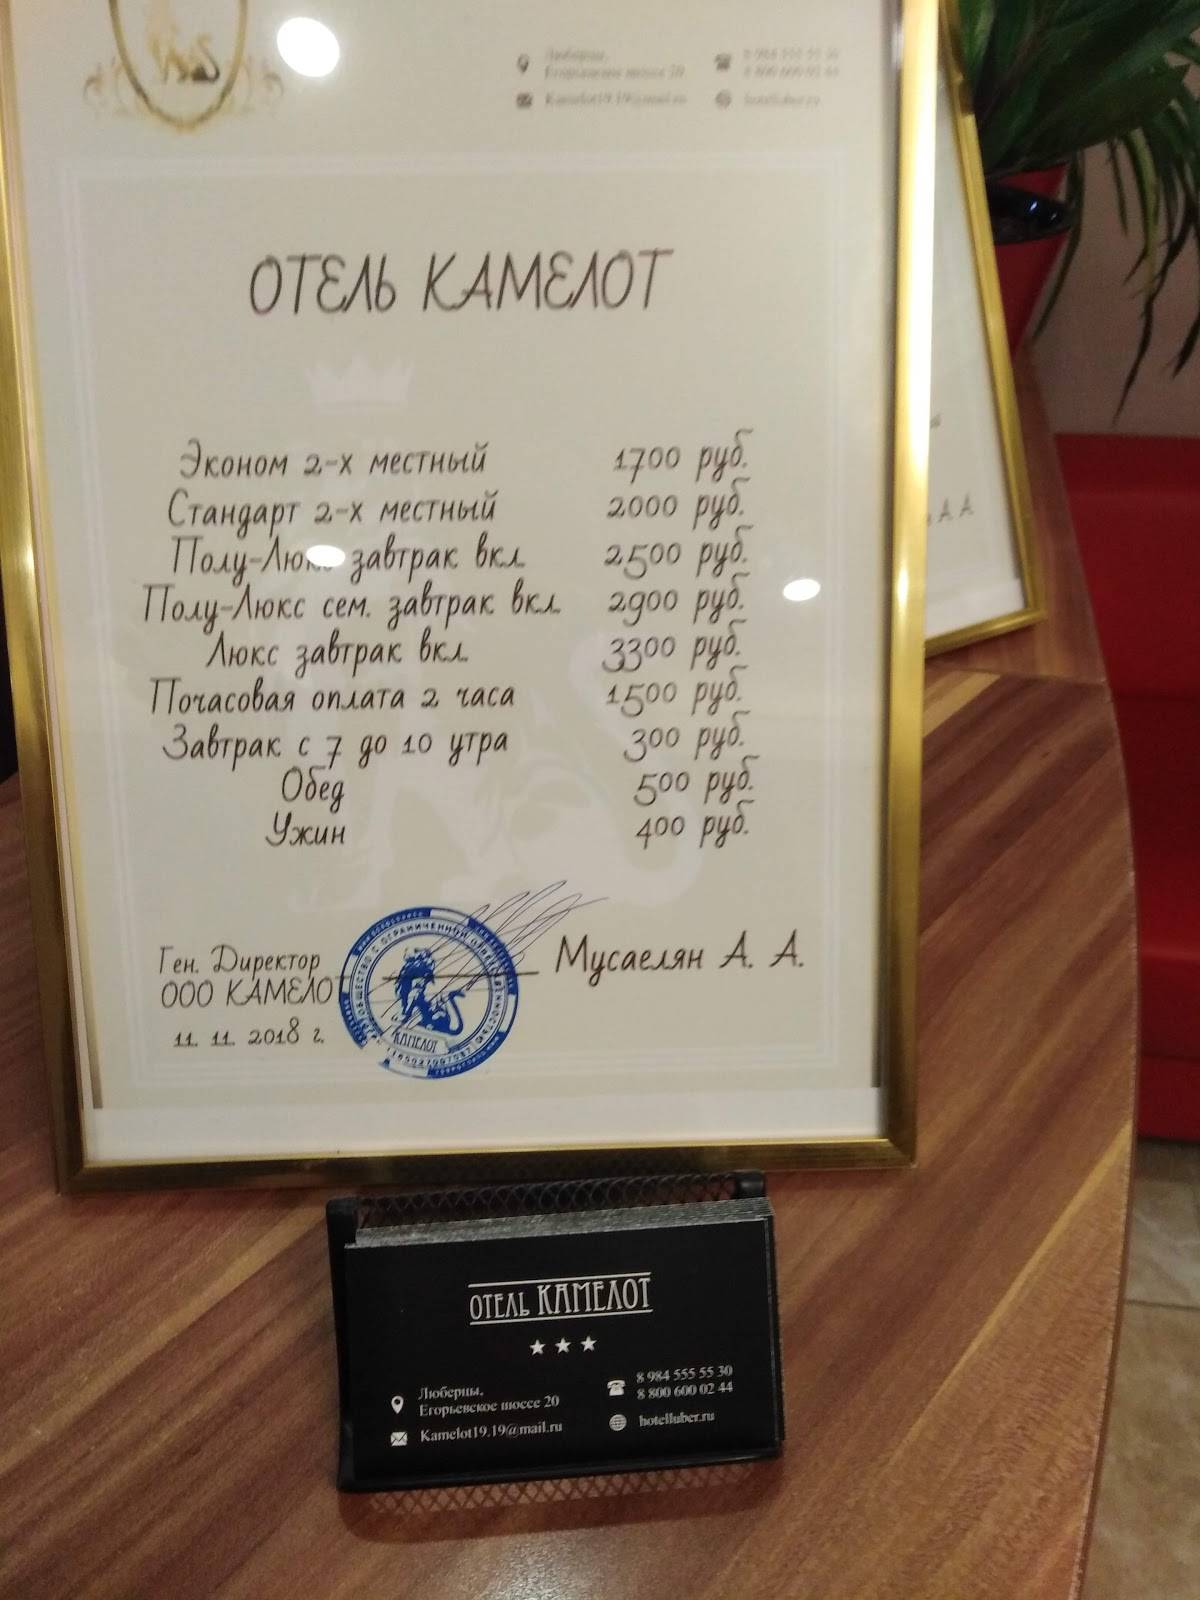 Люберцы,
Егорьевское шоссе 20
Kamelot19.19@mail.ru
8 984 555 55 30
8 800 600 02 44
hotelluber.ru
ОТЕЛЬ КАМЕЛОТ
Эконом 2-х местный 1700 руб.
Стандарт 2-х местный 2000 руб.
Полу-Люкс завтрак вкл. 2500 руб.
Полу-Люкс сем. завтрак вкл. 2900 руб.
Люкс завтрак вкл. 3300 руб.
Почасовая оплата 2 часа 1500 руб.
Завтрак с 7 до 10 утра 300 руб.
Обед 500 руб.
Ужин 400 руб.
Ген. Директор
ООО КАМЕЛОТ
Мусаелян А. А.
11. 11. 2018 г.
ОБЩЕСТВО С ОГРАНИЧЕННОЙ ОТВЕТСТВЕННОСТЬЮ
КАМЕЛОТ
А. А.
ОТЕЛЬ КАМЕЛОТ
Люберцы,
Егорьевское шоссе 20
Kamelot19.19@mail.ru
8 984 555 55 30
8 800 600 02 44
hotelluber.ru